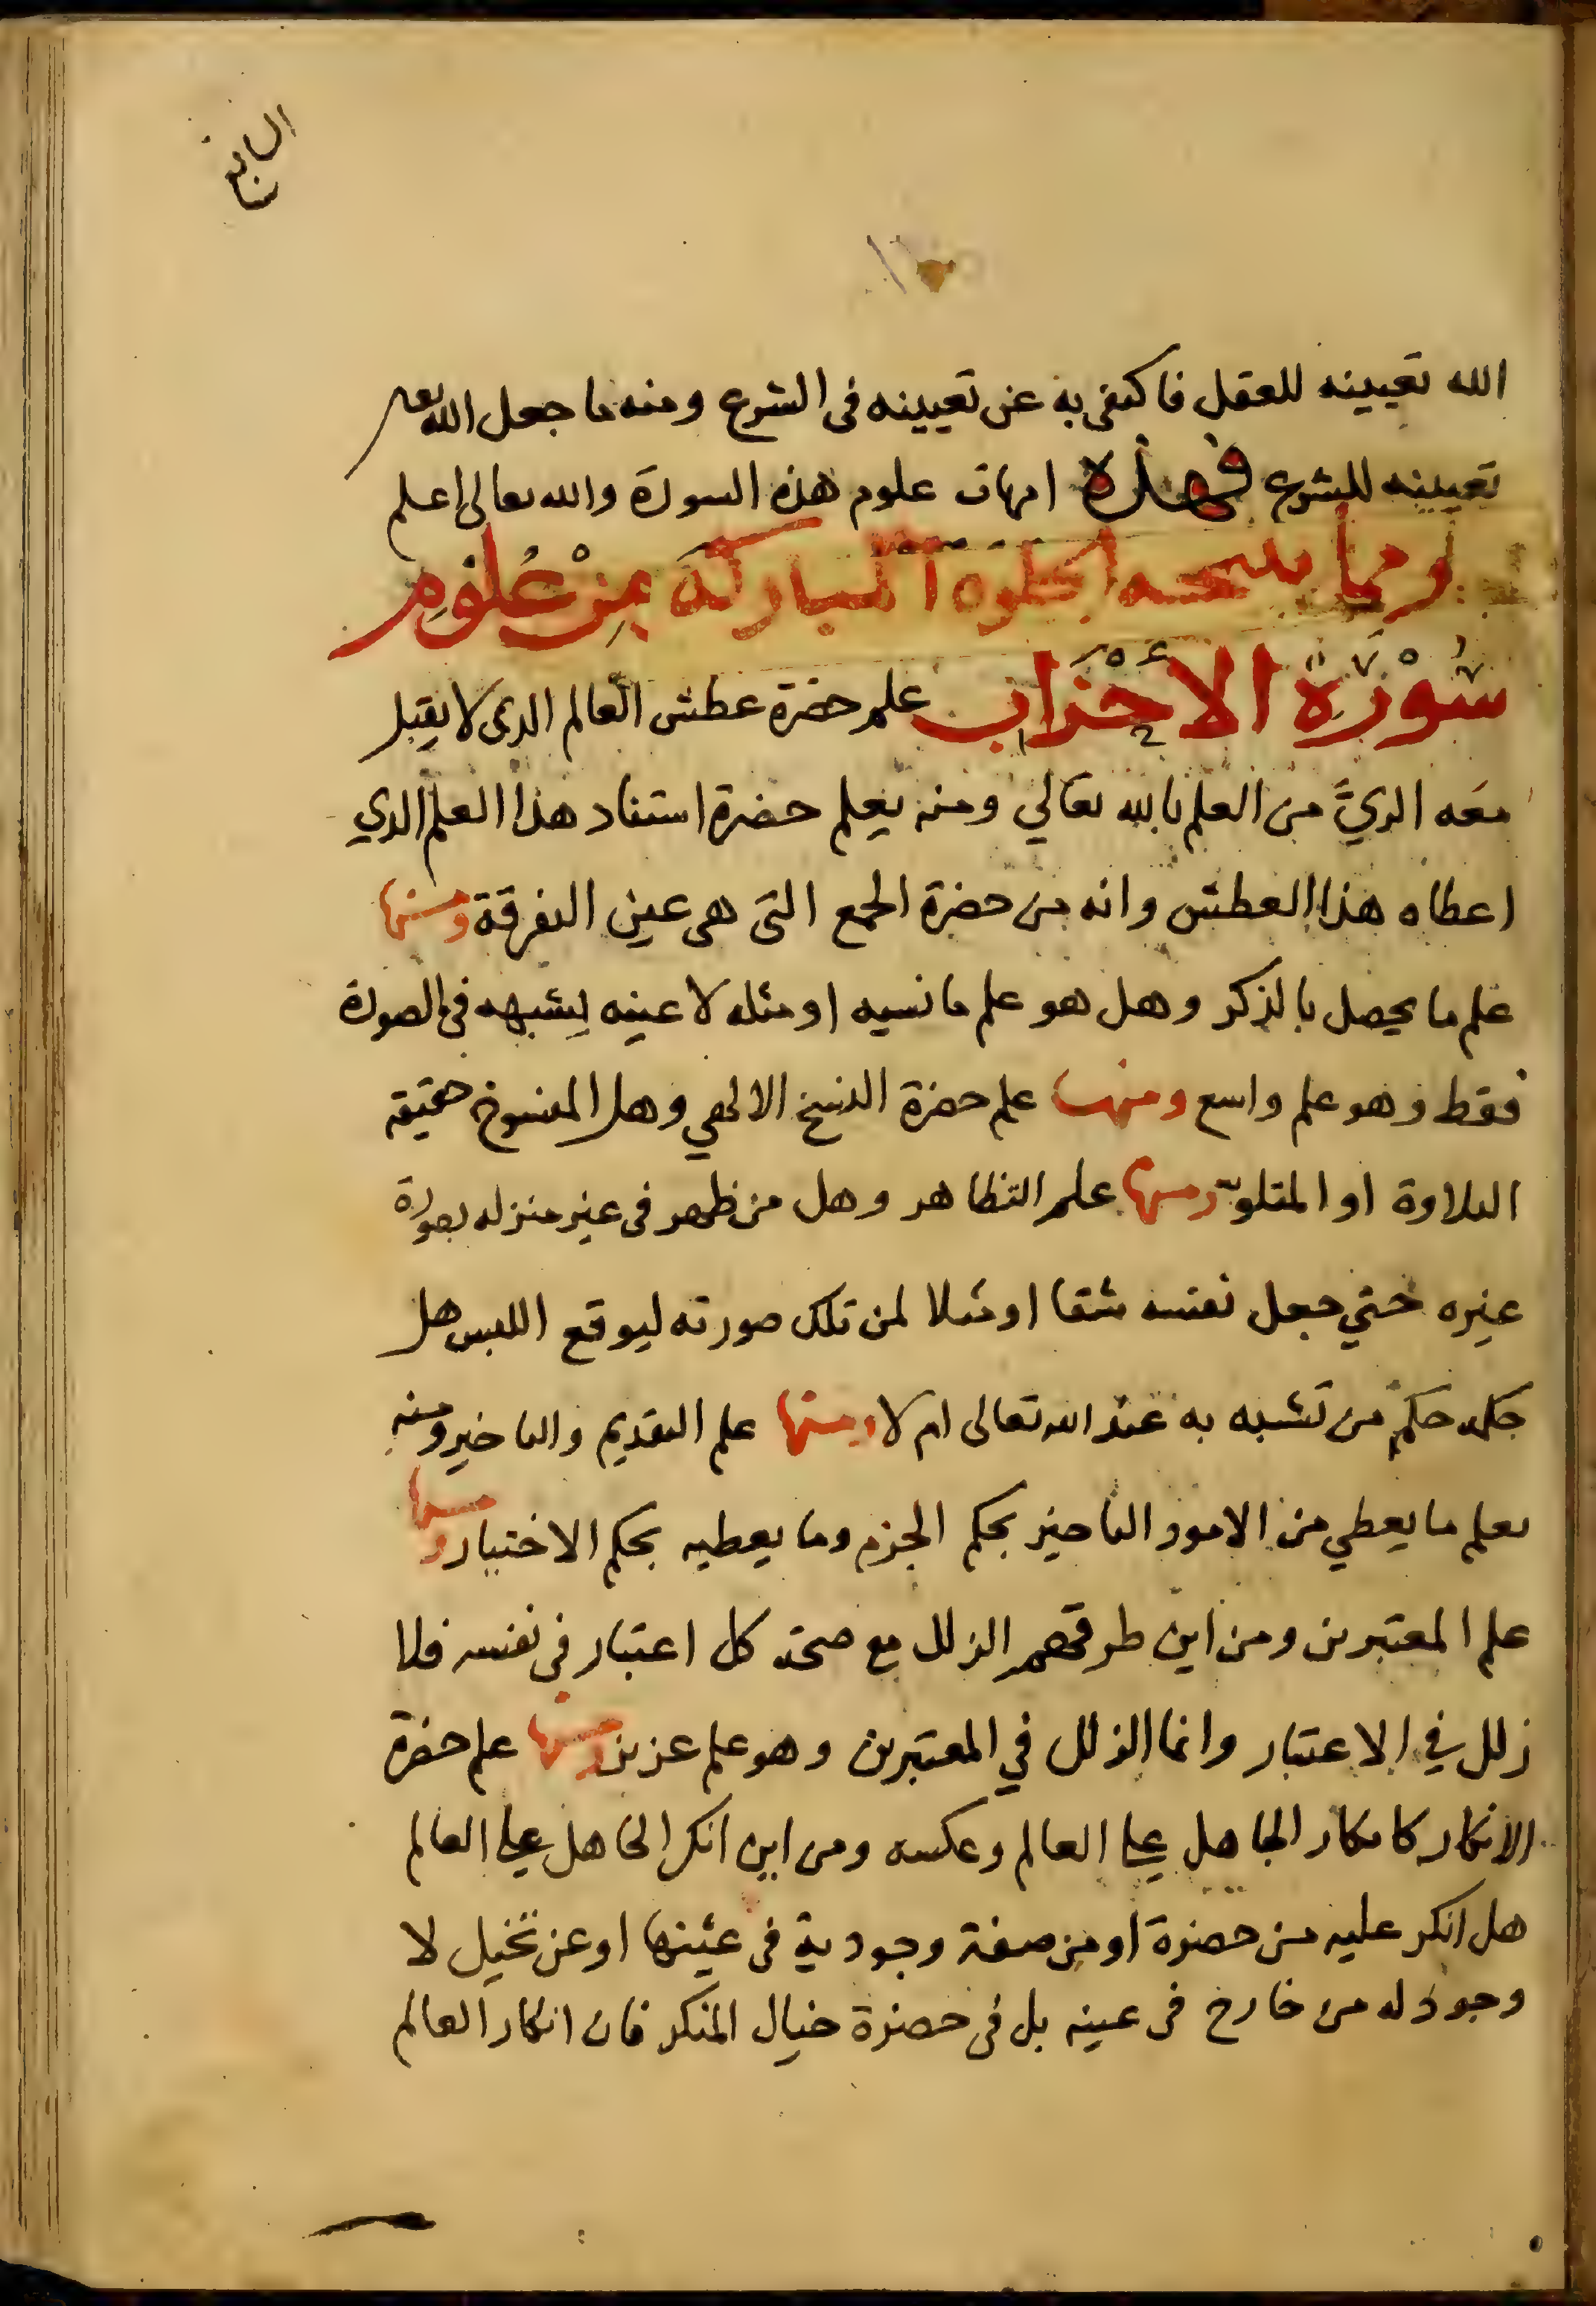 السابع
الله تعيينه للعقل فاكتفى به عن تعيينه فى الشرع ومنه ما جعل الله تعالى
تعيينه للشرع فهذه امهات علوم هذه السورة والله تعالى اعلم
ومما تنتجه الخلوة المباركة مِنْ عُلوم
سُوْرَة الاحْزَاب علم حضرة عطش العالم الذى لا يقبل
معه الريَّ من العلم بالله تعالي ومنه يعلم حضرة استناد هذا العلم الذي
اعطاه هذا العطش وانه من حضرة الجمع التى هى عين التفرقة ومنها
علم ما يحصل بالذكر وهل هو علم ما نسيه او مثله لا عينه لشبهه فى الصورة
فقط وهو علم واسع ومنها علم حضرة النسخ الالهي وهل المنسوخ حقيقة
التلاوة او المتلو به ومنها علم التظاهر وهل من ظهر فى غير منزله بصورة
غيره حتي جعل نفسه شقا او مثلا لمن تلك صورته ليوقع اللبس هل
حكمه حكم من تشبه به عند الله تعالى ام لا ومنها علم التقديم والتاخير ومنه
يعلم ما يعطي من الامور التاخير بحكم الجزم وما يعطيه بحكم الاختيار ومنها
علم المعتبرين ومن اين طرقهم الزلل مع صحة كل اعتبار فى نفسه فلا
زلل في الاعتبار وانما الزلل في المعتبرين وهو علم عزيز ومنها علم حضرة
الانكار كانكار الجاهل على العالم وعكسه ومن اين انكر الجاهل على العالم
هل انكر عليه من حضرة او من صفة وجودية فى عينها او عن تخيل لا
وجود له من خارج فى عينه بل فى حضرة خيال المنكر فان انكار العالم